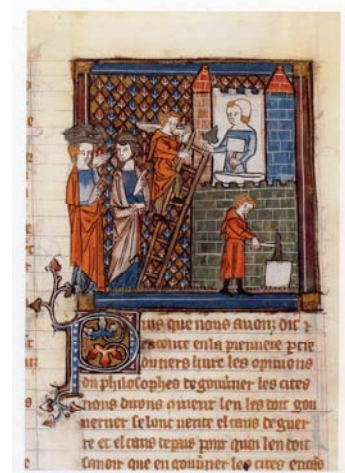 uis que nous auonz dit
raconte en la premiere ptie
du tiers liure les opinions
du philosophes de gouuner les cites
nous dirons ment len les doit gou
uerner selonc uerite el cans de guer
re et el cans de pais pour quoi len doit
sauoir que en gouuner les cites